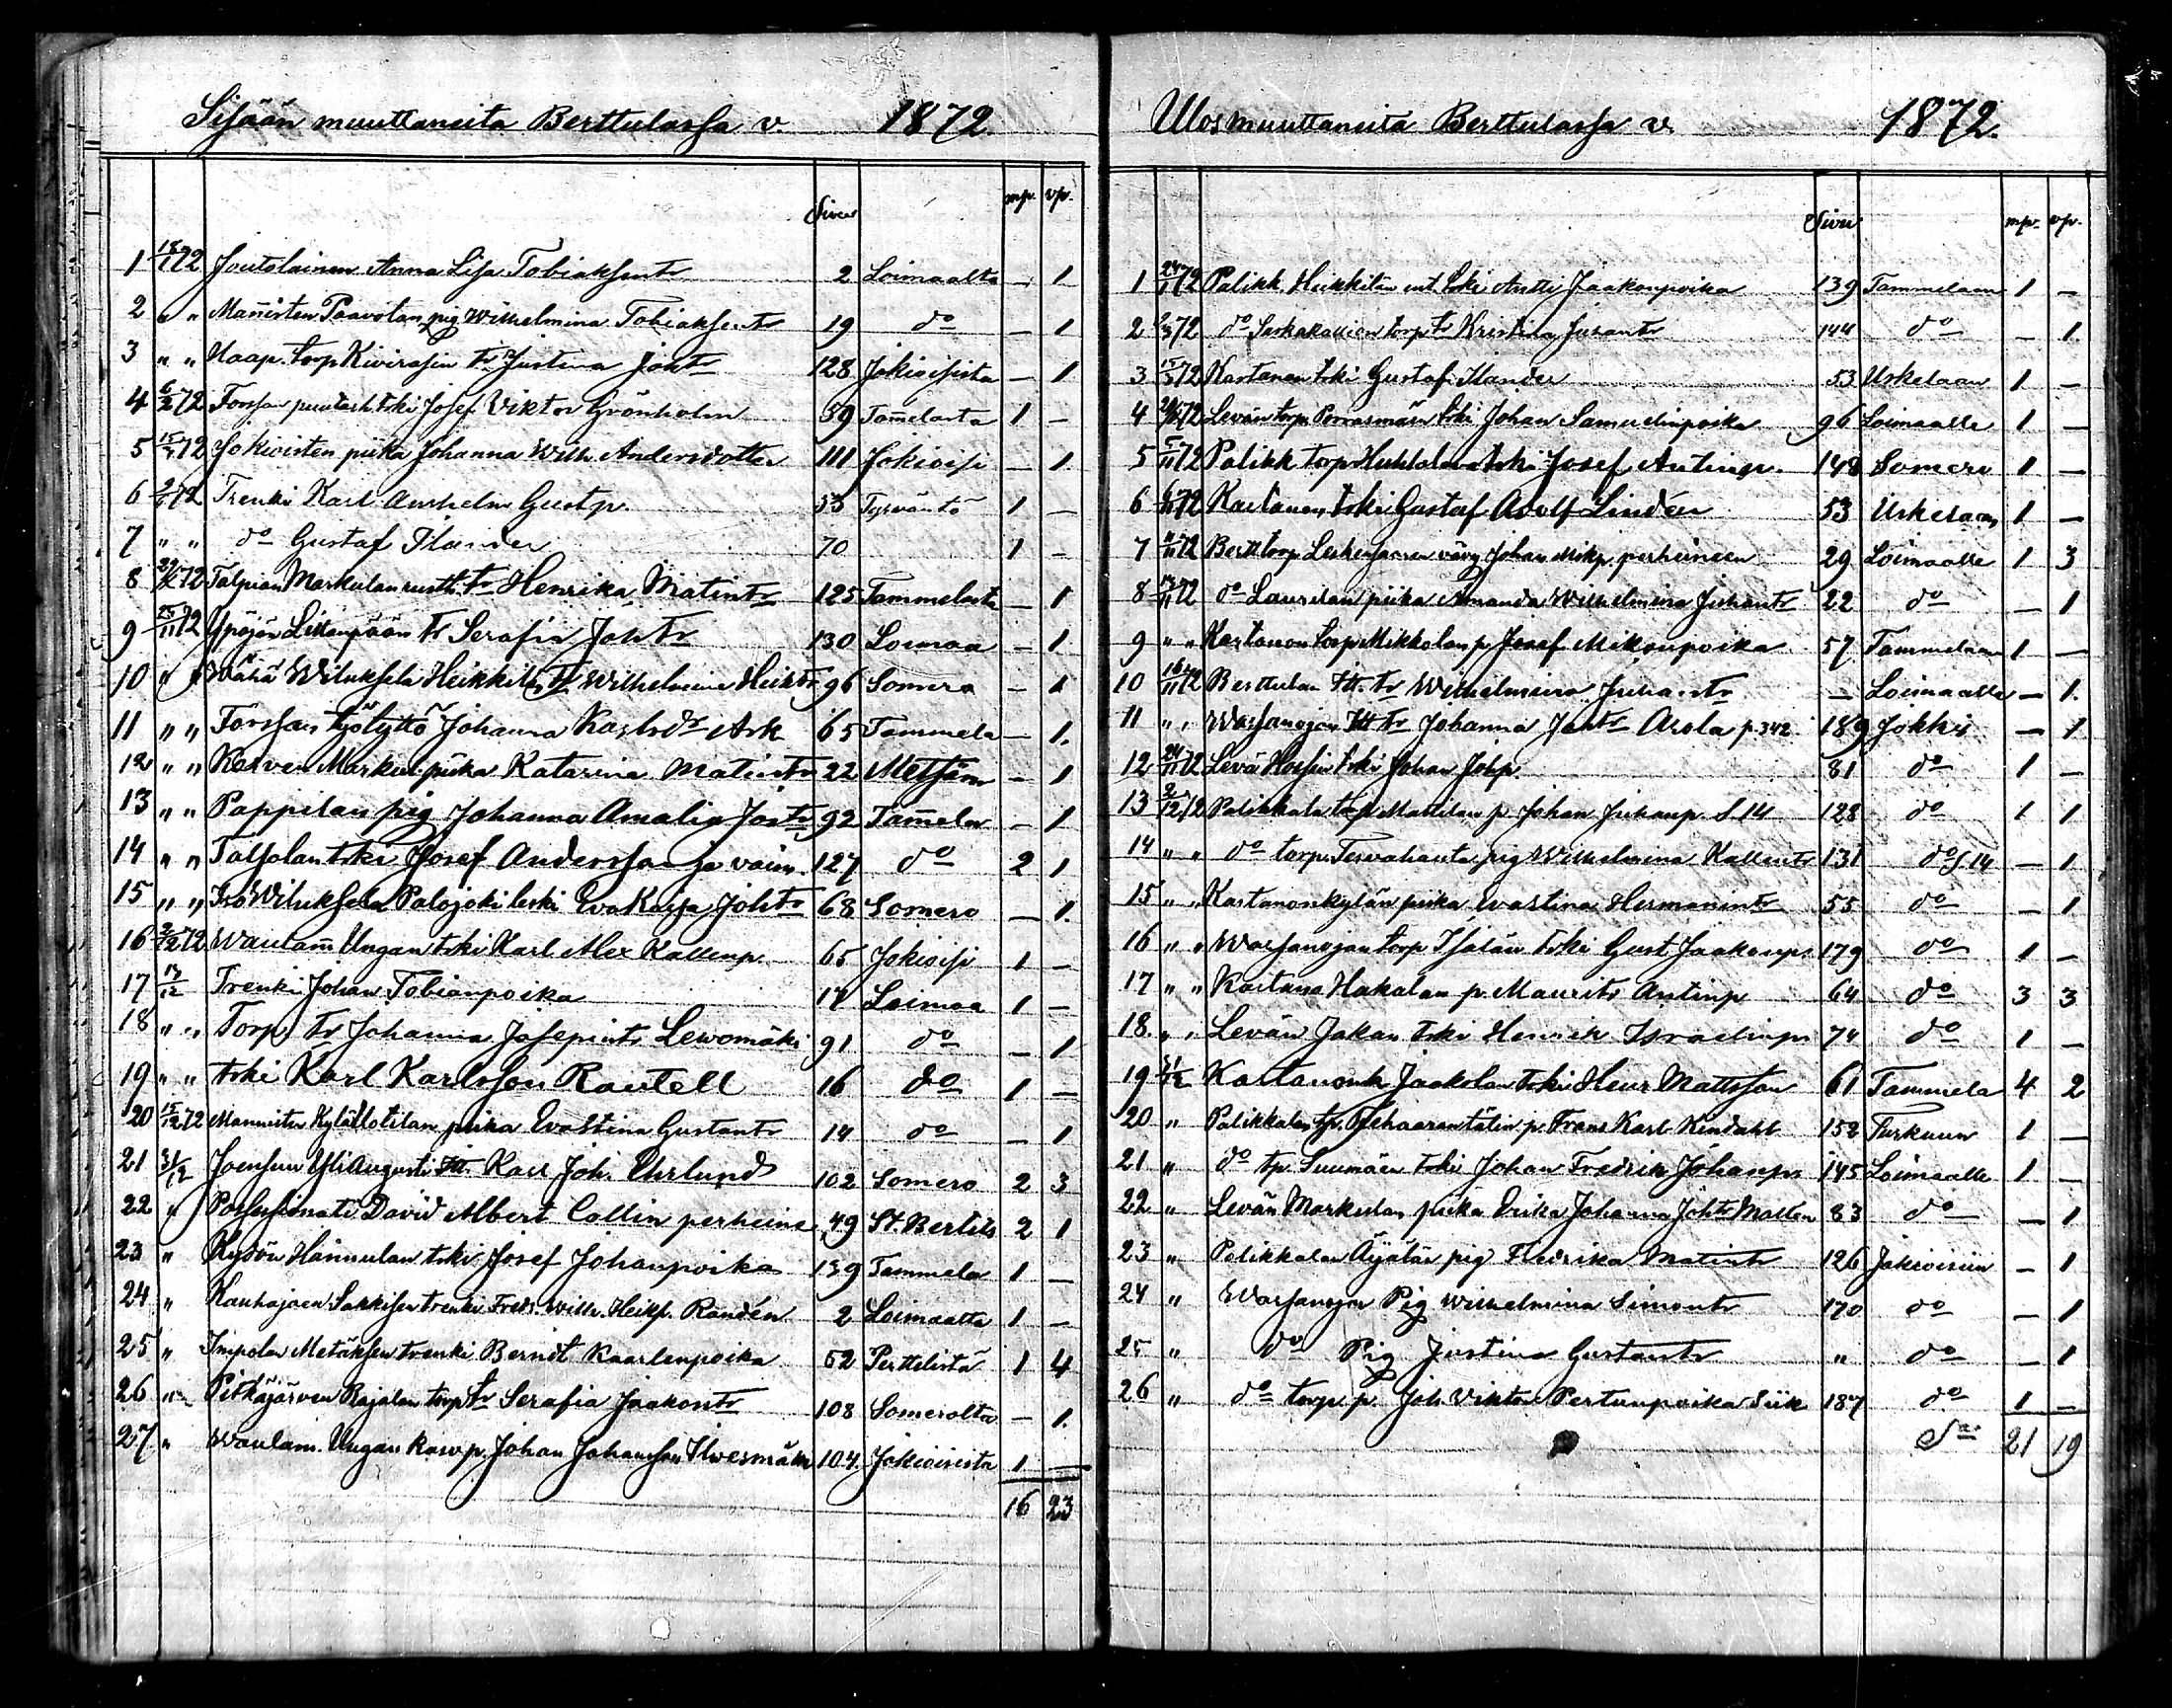 Sisään muuttaneita Berttulassa v. 1872.
mp. vp.
Sivu
1 18/1 72 Joutolainen Anna Lisa Tobiaksentr 2 Loimaalta — 1
2 " " Mannisten Paavolan pig Wilhelmina Tobiaksentr 19 do — 1
3 " " Haap. torp Kivirasin tr Justina Johtr 128 Jokioisista — 1
4 6/2 72 Forssan puutarh. trki Josef Viktor Grönholm 39 Tammelasta 1 —
5 72 Jokioisten piika Johanna Wilh. Andersdotter 111 Jokioisi — 1.
6 72 Trenki Karl Anshelm Gustp. 53 Tyrväntö 1 —
7 " " do Gustaf Ilander 70 1 —
8 72 Talpian Markulan rustt. tr Henrika Matintr 125 Tammelasta — 1
9 25/11 72 Ypäjän Littanpään tr Serafia Johtr 130 Loimaa — 1.
10 " " Wähä Wiluksela Heikkilä tr Wilhelmina Heiktr 96 Somero — 1
11 " " Forssan työtyttö Johanna Karlsdr Ark 65 Tammela — 1.
12 " " Kosven Markun piika Katarina Matintr 22 Metsäm — 1
13 " " Pappilan pig Johanna Amalia Jostr 92 Tammela — 1
14 " " Talsolan trki Josef Andersson ja vaim. 127 do 2 1
15 " " Iso Wiluksela Palojoki leski Eva Kajsa Johtr 68 Somero — 1.
16 2/12 72 Waulam Ungan trki Karl Alex Kallenp. 65 Jokioisi 1 —
17 13/12 Trenki Johan Tobianpoika 17 Loimaa 1 —
18 " " Torp. tr Johanna Josepintr Lewomäki 91 do — 1
19 " " trki Karl Karlsson Rautell 16 do 1 —
20 15/12 72 Mannisten Kylä Uotilan piika Evastina Gustantr 14 do — 1
21 31/12 Joensuu Yli Augusti Itt. Karl Joh. Ehrlund 102 Somero 2 3
22 " Possessionati David Albert Collin perheine 49 St. Bertils 2 1
23 " Kydön Hannulan trki Josef Johanpoika 139 Tammela 1 —
24 " Kauhajaen Sakkisen trenki Fredr. Wilh. Heikp. Randén 2 Loimaalta 1 —
25 " Impolan Metäksen trenki Berndt Kaarlenpoika 52 Perttelistä 1 4
26 " Pitkäjärven Rajalan torp tr Serafia Jaakontr 108 Somerolta — 1.
27 " Waulam. Ungan kasvp. Johan Johansson Ilvesmäki 104. Jokioisista 1 —
16 23
Ulosmuuttaneita Berttulassa v. 1872.
Sivu mp. vp.
1 24/1 72 Palikk. Heikkilän ent. trki Antti Jaakonpoika 139 Tammelaan 1 —
2 72 do Sarkakallion torp tr Kristina Juhantr 144 do — 1.
3 15/3 72 Kartanon trki Gustaf Ilander 53 Uskelaan 1 —
4 72 Levän torp. Porrasmäen trki Johan Samuelinpoika 96 Loimaalle 1 —
5 5/11 72 Palikk torp Huhtalan trki Josef Antinp. 148 Somero 1 —
6 6/11 72 Kartanon trki Gustaf Adolf Lindén 53 Uskelaan 1 —
7 72 Bertt torp. Leskensaaren vävy Johan Mikp. perheineen 29 Loimaalle 1 3
8 13/11 72 do Laurilan piika Amanda Wilhelmina Juhantr 22 do — 1
9 " " Kartanon torp Mikkolan p. Josef Mikonpoika 57 Tammelaan 1 —
10 16/11 72 Berttulan Itt. tr Wilhelmina Juhantr — Loimaalle — 1.
11 " " Warsanojan Itt tr Johanna Johtr Arola p. 342 189 Jokkis — 1
12 24/11 72 Levä Hossin trki Johan Johp. 81 do 1 —
13 2/12 72 Palikkala torp Mattilan p. Johan Juhanp. S. 14 128 do 1 1
14 " " do torp. Tervahauta pig Wilhelmina Kallentr 131 do S. 14 — 1
15 " " Kartanonkylän piika Evastina Hermanintr 55 do — 1
16 " " Warsanojan torp Isotalon trki Gust Jaakonp. 179 do 1 —
17 " " Kartano Hakalan p. Maurits Antinp 64 do 3 3
18. " " Levän Jakan trki Henrik Israelinp. 74 do 1 —
19 31/12 Kartanonk Jaakolan trki Henr Mattsson 61 Tammela 4 2
20 " Palikkalan tp. p. Frans Karl Kindahl 152 Turkuun 1 —
21 " do tp. Suumäen trki Johan Fredrik Johanp. 145 Loimaalle 1 —
22 " Levän Markulan piika Erika Johanna Johtr Mallen 83 do — 1
23 " Palikkalan Äijälän pig Fredrika Matintr 126 Jokioisiin — 1
24 " Warsanojan Pig Wilhelmina Simontr 170 do — 1
25 " do Pig Justina Gustantr " do — 1
26 " do torp. p. Joh. Viktor Pertunpoika Siik 187 do 1 —
Sa 21 19